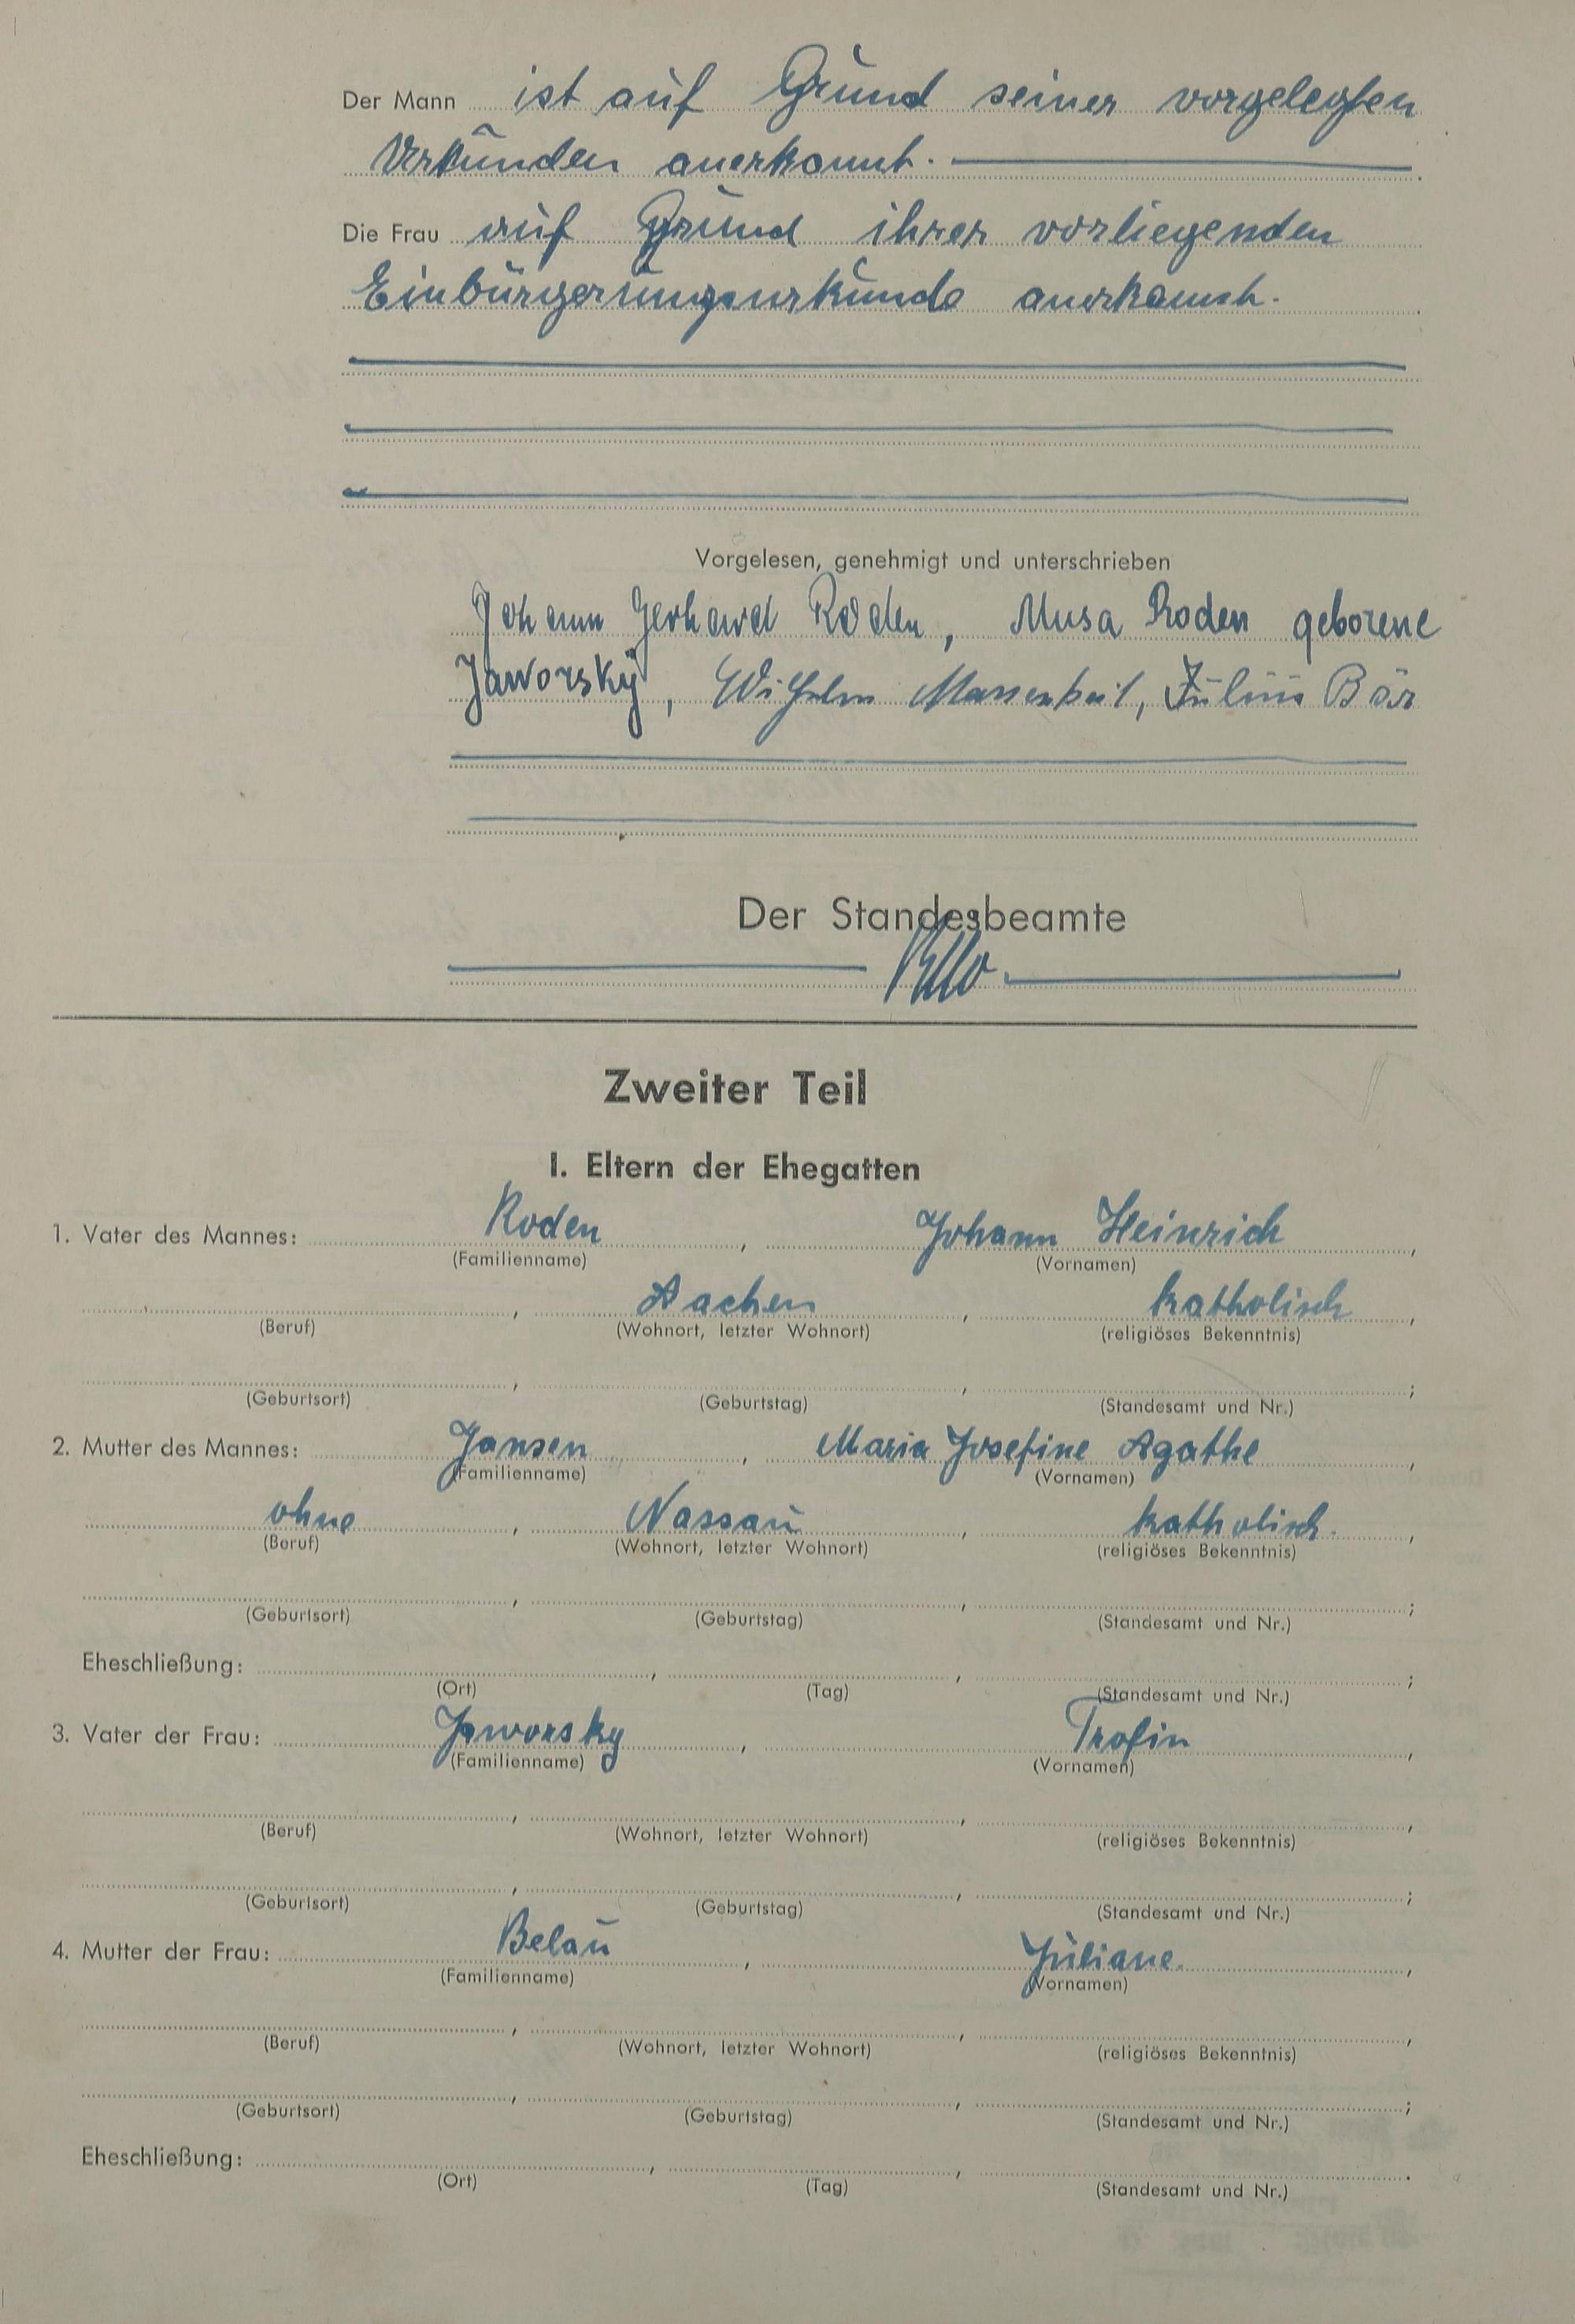 Der Mann ist auf Grund seiner vorgelegten
Urkunden anerkannt.
Die Frau auf Grund ihrer vorliegenden
Einbürgerungsurkunde anerkannt.
Vorgelesen, genehmigt und unterschrieben
Johann Gerhard Roden, Musa Roden geborene
Jaworsky, Wilhelm Massenkeil, Julius Bär
Der Standesbeamte
Zweiter Teil
I. Eltern der Ehegatten
1. Vater des Mannes: Roden, Johann Heinrich,
(Familienname) (Vornamen)
, Aachen, katholisch,
(Beruf) (Wohnort, letzter Wohnort) (religiöses Bekenntnis)
(Geburtsort) (Geburtstag) (Standesamt und Nr.)
2. Mutter des Mannes: Jansen, Maria Josefine Agathe,
(Familienname) (Vornamen)
ohne, Nassau, katholisch.,
(Beruf) (Wohnort, letzter Wohnort) (religiöses Bekenntnis)
(Geburtsort) (Geburtstag) (Standesamt und Nr.)
Eheschließung: , , ;
(Ort) (Tag) (Standesamt und Nr.)
3. Vater der Frau: Jaworsky, Trofin,
(Familienname) (Vornamen)
(Beruf) (Wohnort, letzter Wohnort) (religiöses Bekenntnis)
(Geburtsort) (Geburtstag) (Standesamt und Nr.)
4. Mutter der Frau: Belau, Juliane.,
(Familienname) (Vornamen)
(Beruf) (Wohnort, letzter Wohnort) (religiöses Bekenntnis)
(Geburtsort) (Geburtstag) (Standesamt und Nr.)
Eheschließung: , , .
(Ort) (Tag) (Standesamt und Nr.)